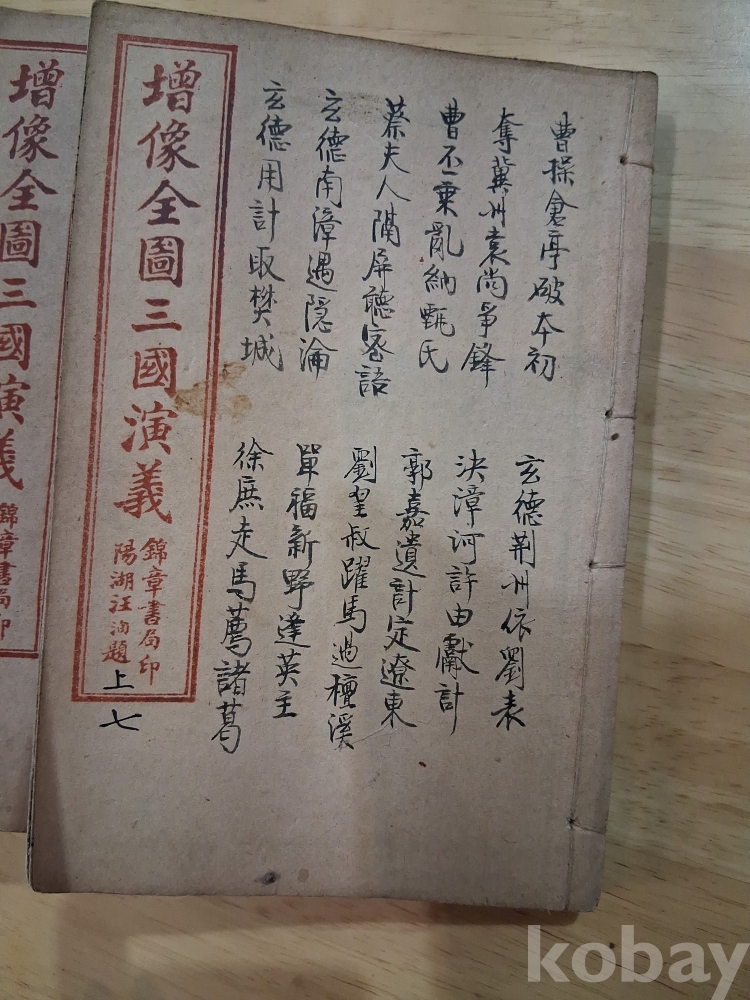 曹操倉亭破本初
玄德荆州依劉表
奪冀州袁尚爭鋒
決漳河許由獻計
曹丕乗亂納甄氏
郭嘉遺計定遼東
蔡夫人隔屏聽密語
劉皇叔躍馬過檀溪
玄德南漳遇隐淪
單福新野逢英主
玄德用計取樊城
徐庶走馬薦諸葛
增像全圖三國演義
錦章書局印
陽湖汪洵題
上七
增像全圖三國演義
錦章書局印
kobay